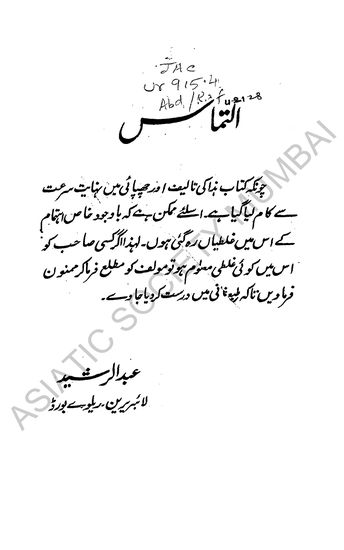 JAC
Ur 915.4
Abd/R.2f
U 2128
التماس
چونکہ کتاب ہذا کی تالیف اور چھپائی میں نہایت سرعت
سے کام لیا گیا ہے۔ اسلئے ممکن ہے کہ باوجود خاص اہتمام
کے اس میں غلطیاں رہ گئی ہوں۔ لہذا اگر کسی صاحب کو
اس میں کوئی غلطی معلوم ہو تو مولف کو مطلع فرما کر ممنون
فرماویں تاکہ طبع ثانی میں درست کر دیا جاوے۔
عبدالرشید
لائبریرین۔ ریلوے بورڈ
ASIATIC SOCIETY MUMBAI